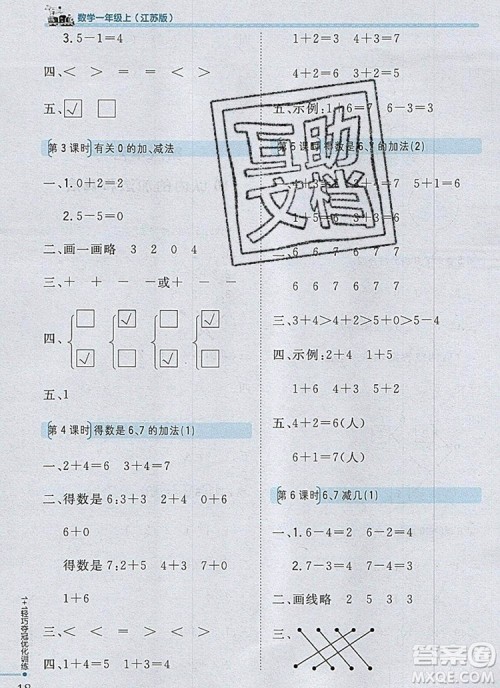 数学一年级上(江苏版)
3.5-1=4
四、< > < = = >
五、☑ □ □
第3课时 有关0的加、减法
一、1.0+2=2
2.5-5=0
二、画一画略 3 2 0 4
三、+ - + - 或 + - -
四、□ ☑ □ ☑
☑ □ ☑ □
五、1
第4课时 得数是6、7的加法(1)
一、2+4=6 3+4=7
二、得数是6:3+3 2+4 5+1
6+0
得数是7:5+2 4+3 7+0
1+6
三、> > > = < <
四、1+3=4 1+4=5
1+2=3 4+2=6
3+3=6
五、示例:1+6=7 6-3=3
第5课时 得数是6、7的加法(2)
3+4=7 5+1=6
1+5=6 3+3=6
6 7 6 7 7 6
6 6 7 7 7 7
三、3+4>4+2>5+0>5-4
四、示例:2+4 1+5
3+4 5+2
五、4+2=6(人)
6+1=7(人)
第6课时 6、7减几(1)
一、1.6-4=2 6-2=4
2.7-3=4 7-4=3
二、画线略 2 5 3 3
三、
1+1轻巧夺冠优化训练
18
互助文档
答案圈
MXQE.COM